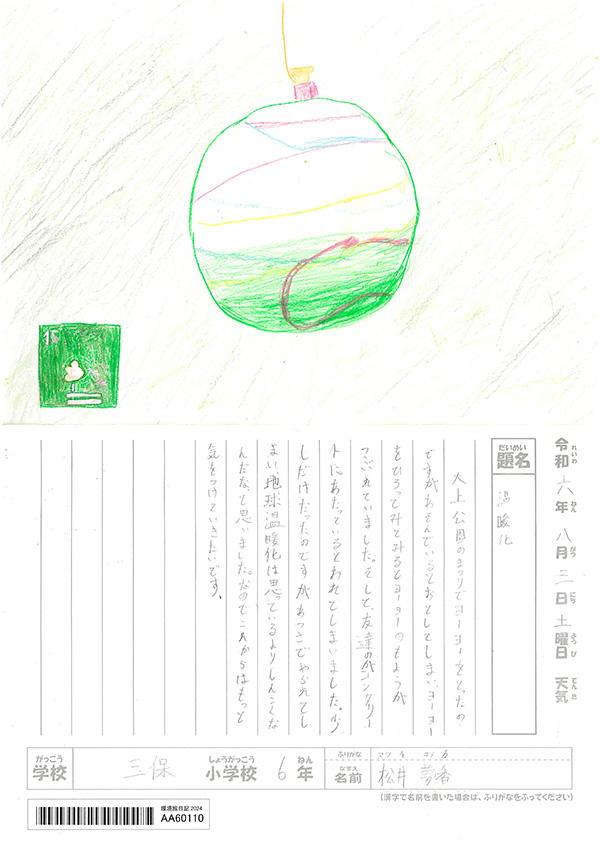 令和六年八月三日土曜日 天気
れいわ ねん がつ にち ようび てんき
だいめい
題名
温暖化
大上公園のまつりでヨーヨーをとったの
ですがあそんでいるとおとしてしまい、ヨーヨー
をひろってみてみるとヨーヨーのもようが
つぶれていました。そして、友達のがコンクリー
トにあたっているとわれてしまいました。少
しだけだったのですがあつさでやられてし
まい、地球温暖化は思っているよりしんこくな
んだな、と思いました。なのでこれからはもっと
気をつけていきたいです。
がっこう しょうがっこう ねん ふりがな マツイ
学校 三保 小学校 6年 なまえ 名前 松井 夢香
(漢字で名前を書いた場合は、ふりがなをふってください)
環境絵日記 2024
AA60110